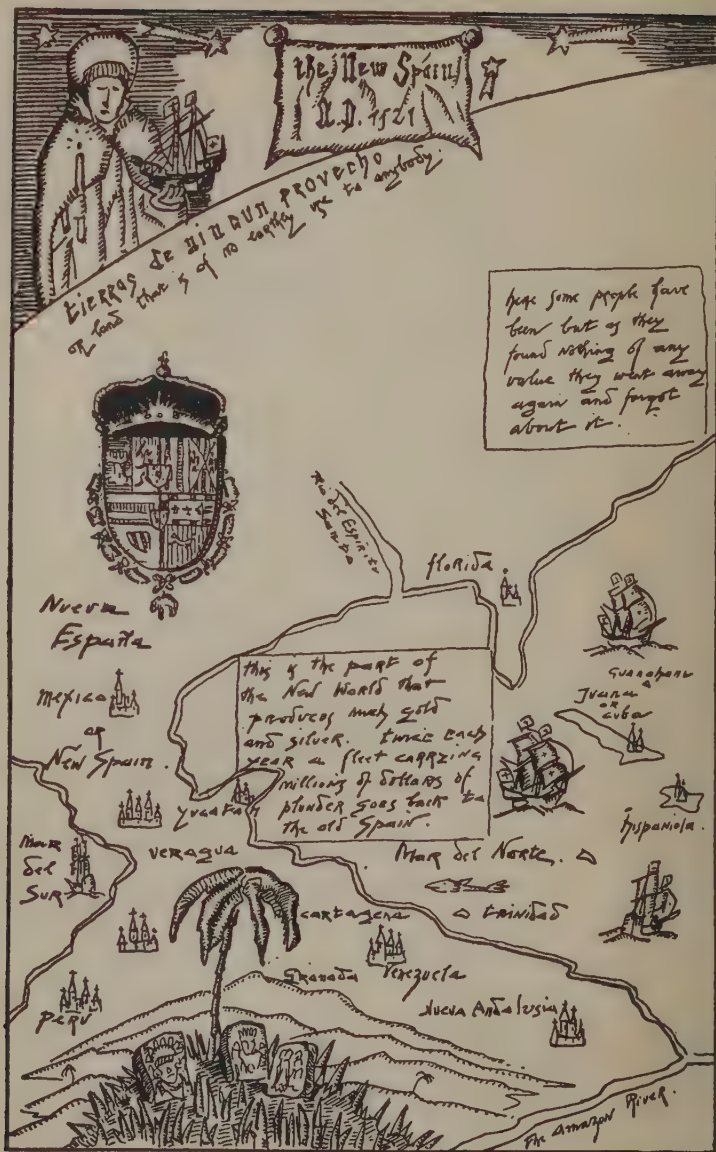 the New Spain
A.D. 1521
tierras de ningun provecho
or land that is of no earthly use to anybody.
here some people have
been but as they
found nothing of any
value they went away
again and forgot
about it.
Rio del Espiritu
Santo
florida.
Nueva
España
Mexico
or
New Spain.
this is the part of
the New World that
produces much gold
and silver. twice each
year a fleet carrzing
millions of dollars of
plunder goes back to
the old Spain.
Guanahani
Juana
or
Cuba
hispaniola.
Yucatan
Mar
del
Sur
Veragua
Mar del Norte.
Cartagena
trinidad
Granada
Venezuela
Peru
Nueva Andalusia
the Amazon River.